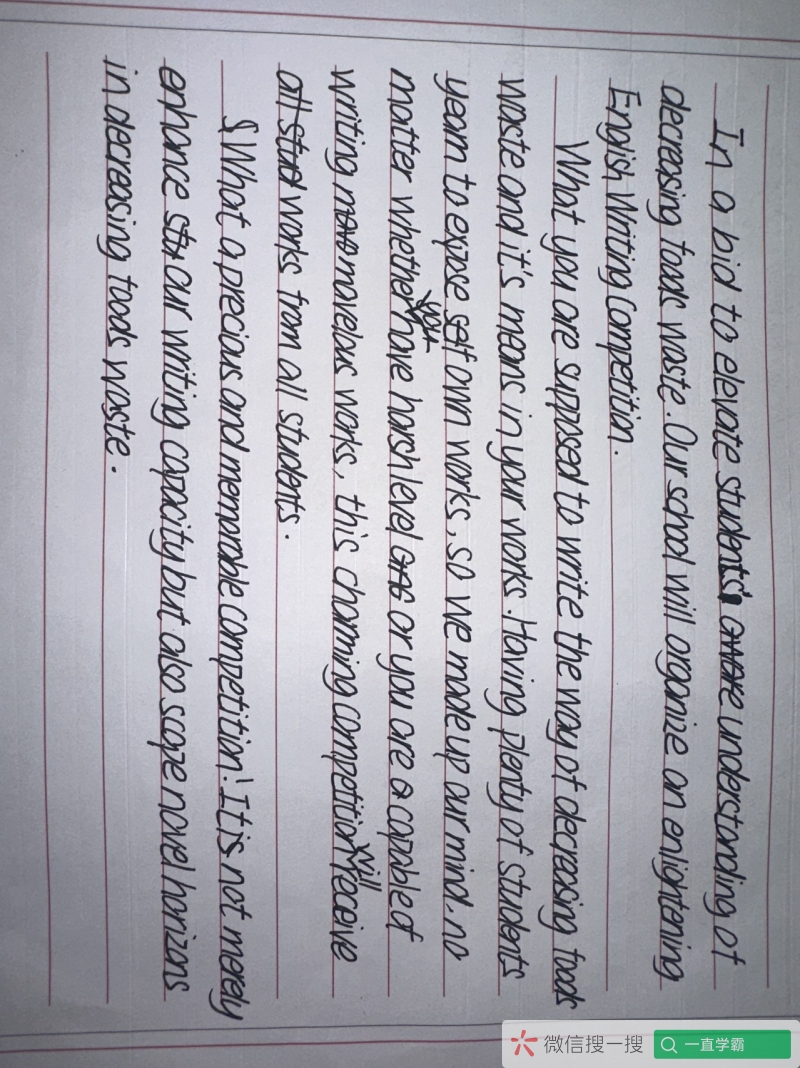 In a bid to elevate students' understanding of
decreasing foods waste. Our school will organize an enlightening
English Writing Competition.
What you are supposed to write the way of decreasing foods
waste and it's means in your works. Having plenty of students
yearn to expose self own works, so we made up our mind. no
matter whether you have harsh level or you are a capable of
writing movelous works, this charming competition will receive
works from all students.
What a precious and memorable competition! It is not merely
enhance our writing capacity but also scope novel horizons
in decreasing foods waste.
微信搜一搜
一直学霸